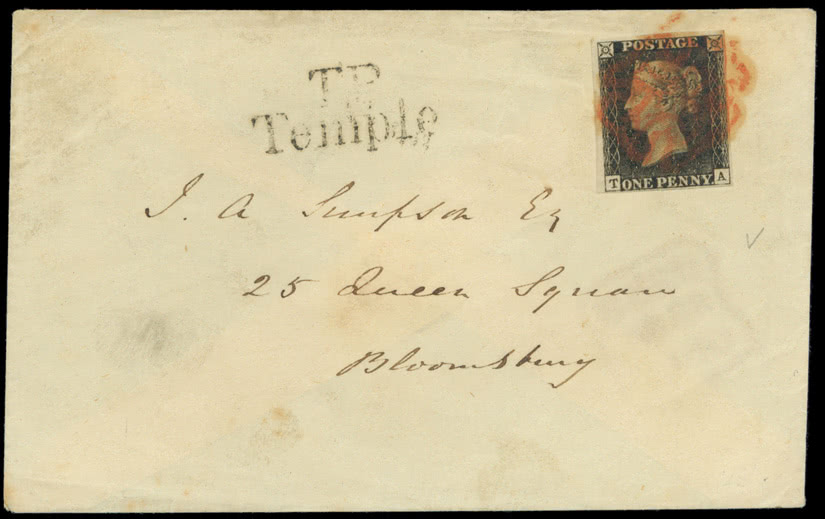 T.P
Temple
POSTAGE
T ONE PENNY A
J. A Simpson Eq
25 Queen Square
Bloomsbury